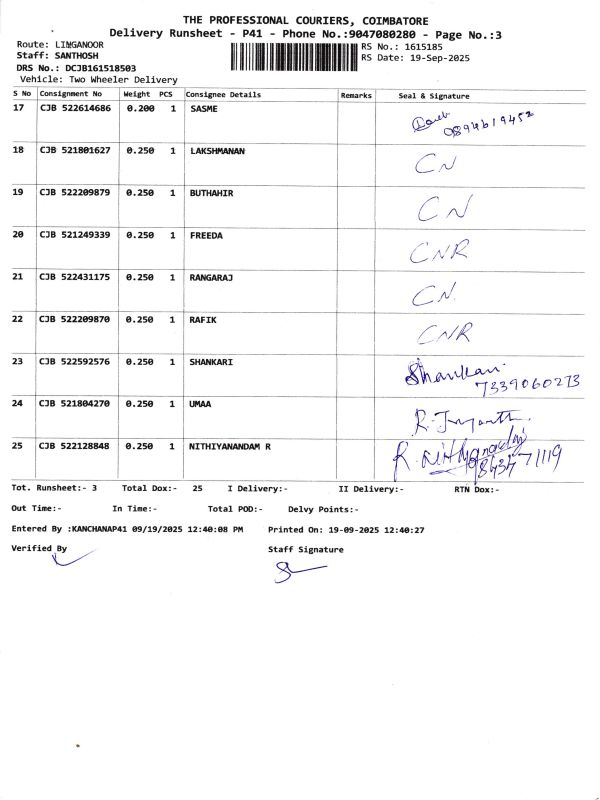 THE PROFESSIONAL COURIERS, COIMBATORE
Delivery Runsheet - P41 - Phone No.:9047080280 - Page No.:3
Route: LINGANOOR RS No.: 1615185
Staff: SANTHOSH RS Date: 19-Sep-2025
DRS No.: DCJB161518503
Vehicle: Two Wheeler Delivery
S No Consignment No Weight PCS Consignee Details Remarks Seal & Signature
17 CJB 522614686 0.200 1 SASME
18 CJB 521801627 0.250 1 LAKSHMANAN CN
19 CJB 522209879 0.250 1 BUTHAHIR CN
20 CJB 521249339 0.250 1 FREEDA CNR
21 CJB 522431175 0.250 1 RANGARAJ CN
22 CJB 522209870 0.250 1 RAFIK CNR
23 CJB 522592576 0.250 1 SHANKARI Shankari
7339060273
24 CJB 521804270 0.250 1 UMAA
25 CJB 522128848 0.250 1 NITHIYANANDAM R
Tot. Runsheet:- 3 Total Dox:- 25 I Delivery:- II Delivery:- RTN Dox:-
Out Time:- In Time:- Total POD:- Delvy Points:-
Entered By :KANCHANAP41 09/19/2025 12:40:08 PM Printed On: 19-09-2025 12:40:27
Verified By Staff Signature